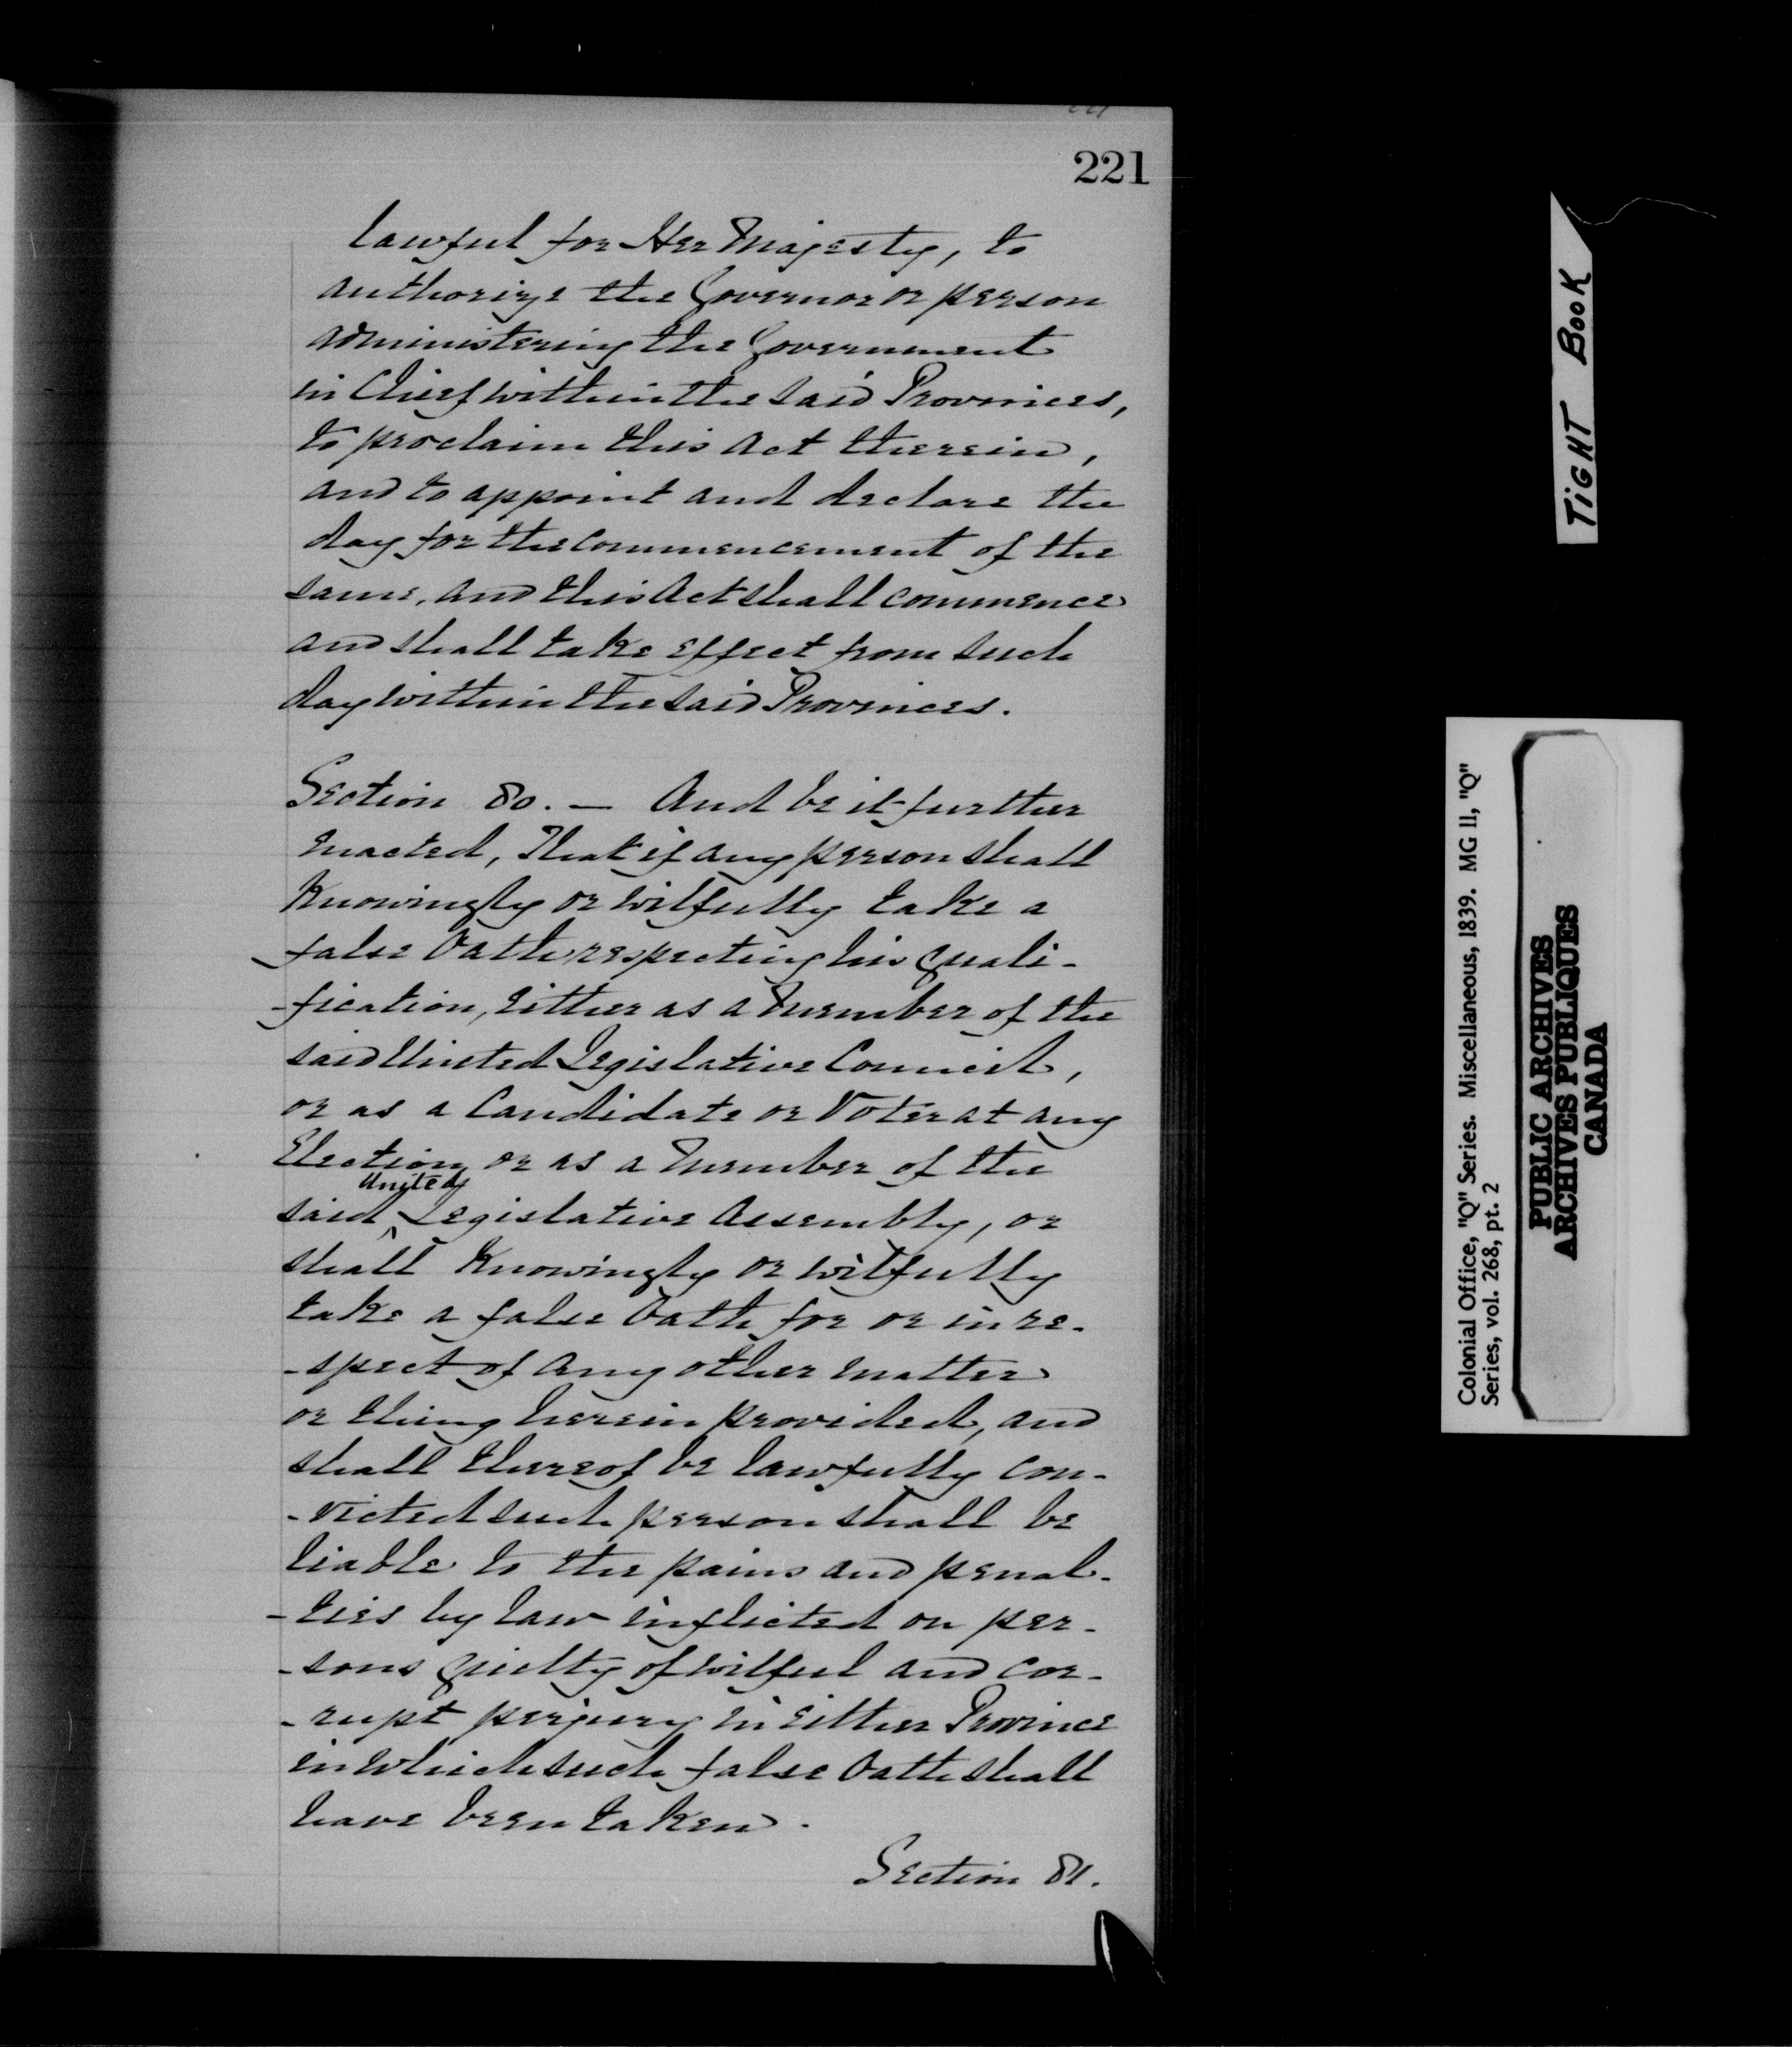 221
lawful for Her Majesty, to
authorize the Governor or person
administering the Government
in Chief within the said Provinces,
to proclaim this Act therein,
and to appoint and declare the
day for the commencement of the
same, and this Act shall commence
and shall take effect from such
day within the said Provinces.
Section 80. — And be it further
enacted, That if any person shall
knowingly or wilfully take a
false Oath respecting his quali-
-fication, either as a Member of the
said United Legislative Council,
or as a Candidate or Voter at any
Election or as a Member of the
United
said Legislative Assembly, or
shall knowingly or wilfully
take a false Oath for or in re-
-spect of any other matter
or thing herein provided, and
shall thereof be lawfully con-
-victed such person shall be
liable to the pains and penal-
-ties by law inflicted on per-
-sons guilty of wilful and cor-
-rupt perjury in either Province
in which such false Oath shall
have been taken.
Section 81.
TIGHT BOOK
Colonial Office, "Q" Series. Miscellaneous, 1839. MG 11, "Q"
Series, vol. 268, pt. 2
PUBLIC ARCHIVES
ARCHIVES PUBLIQUES
CANADA